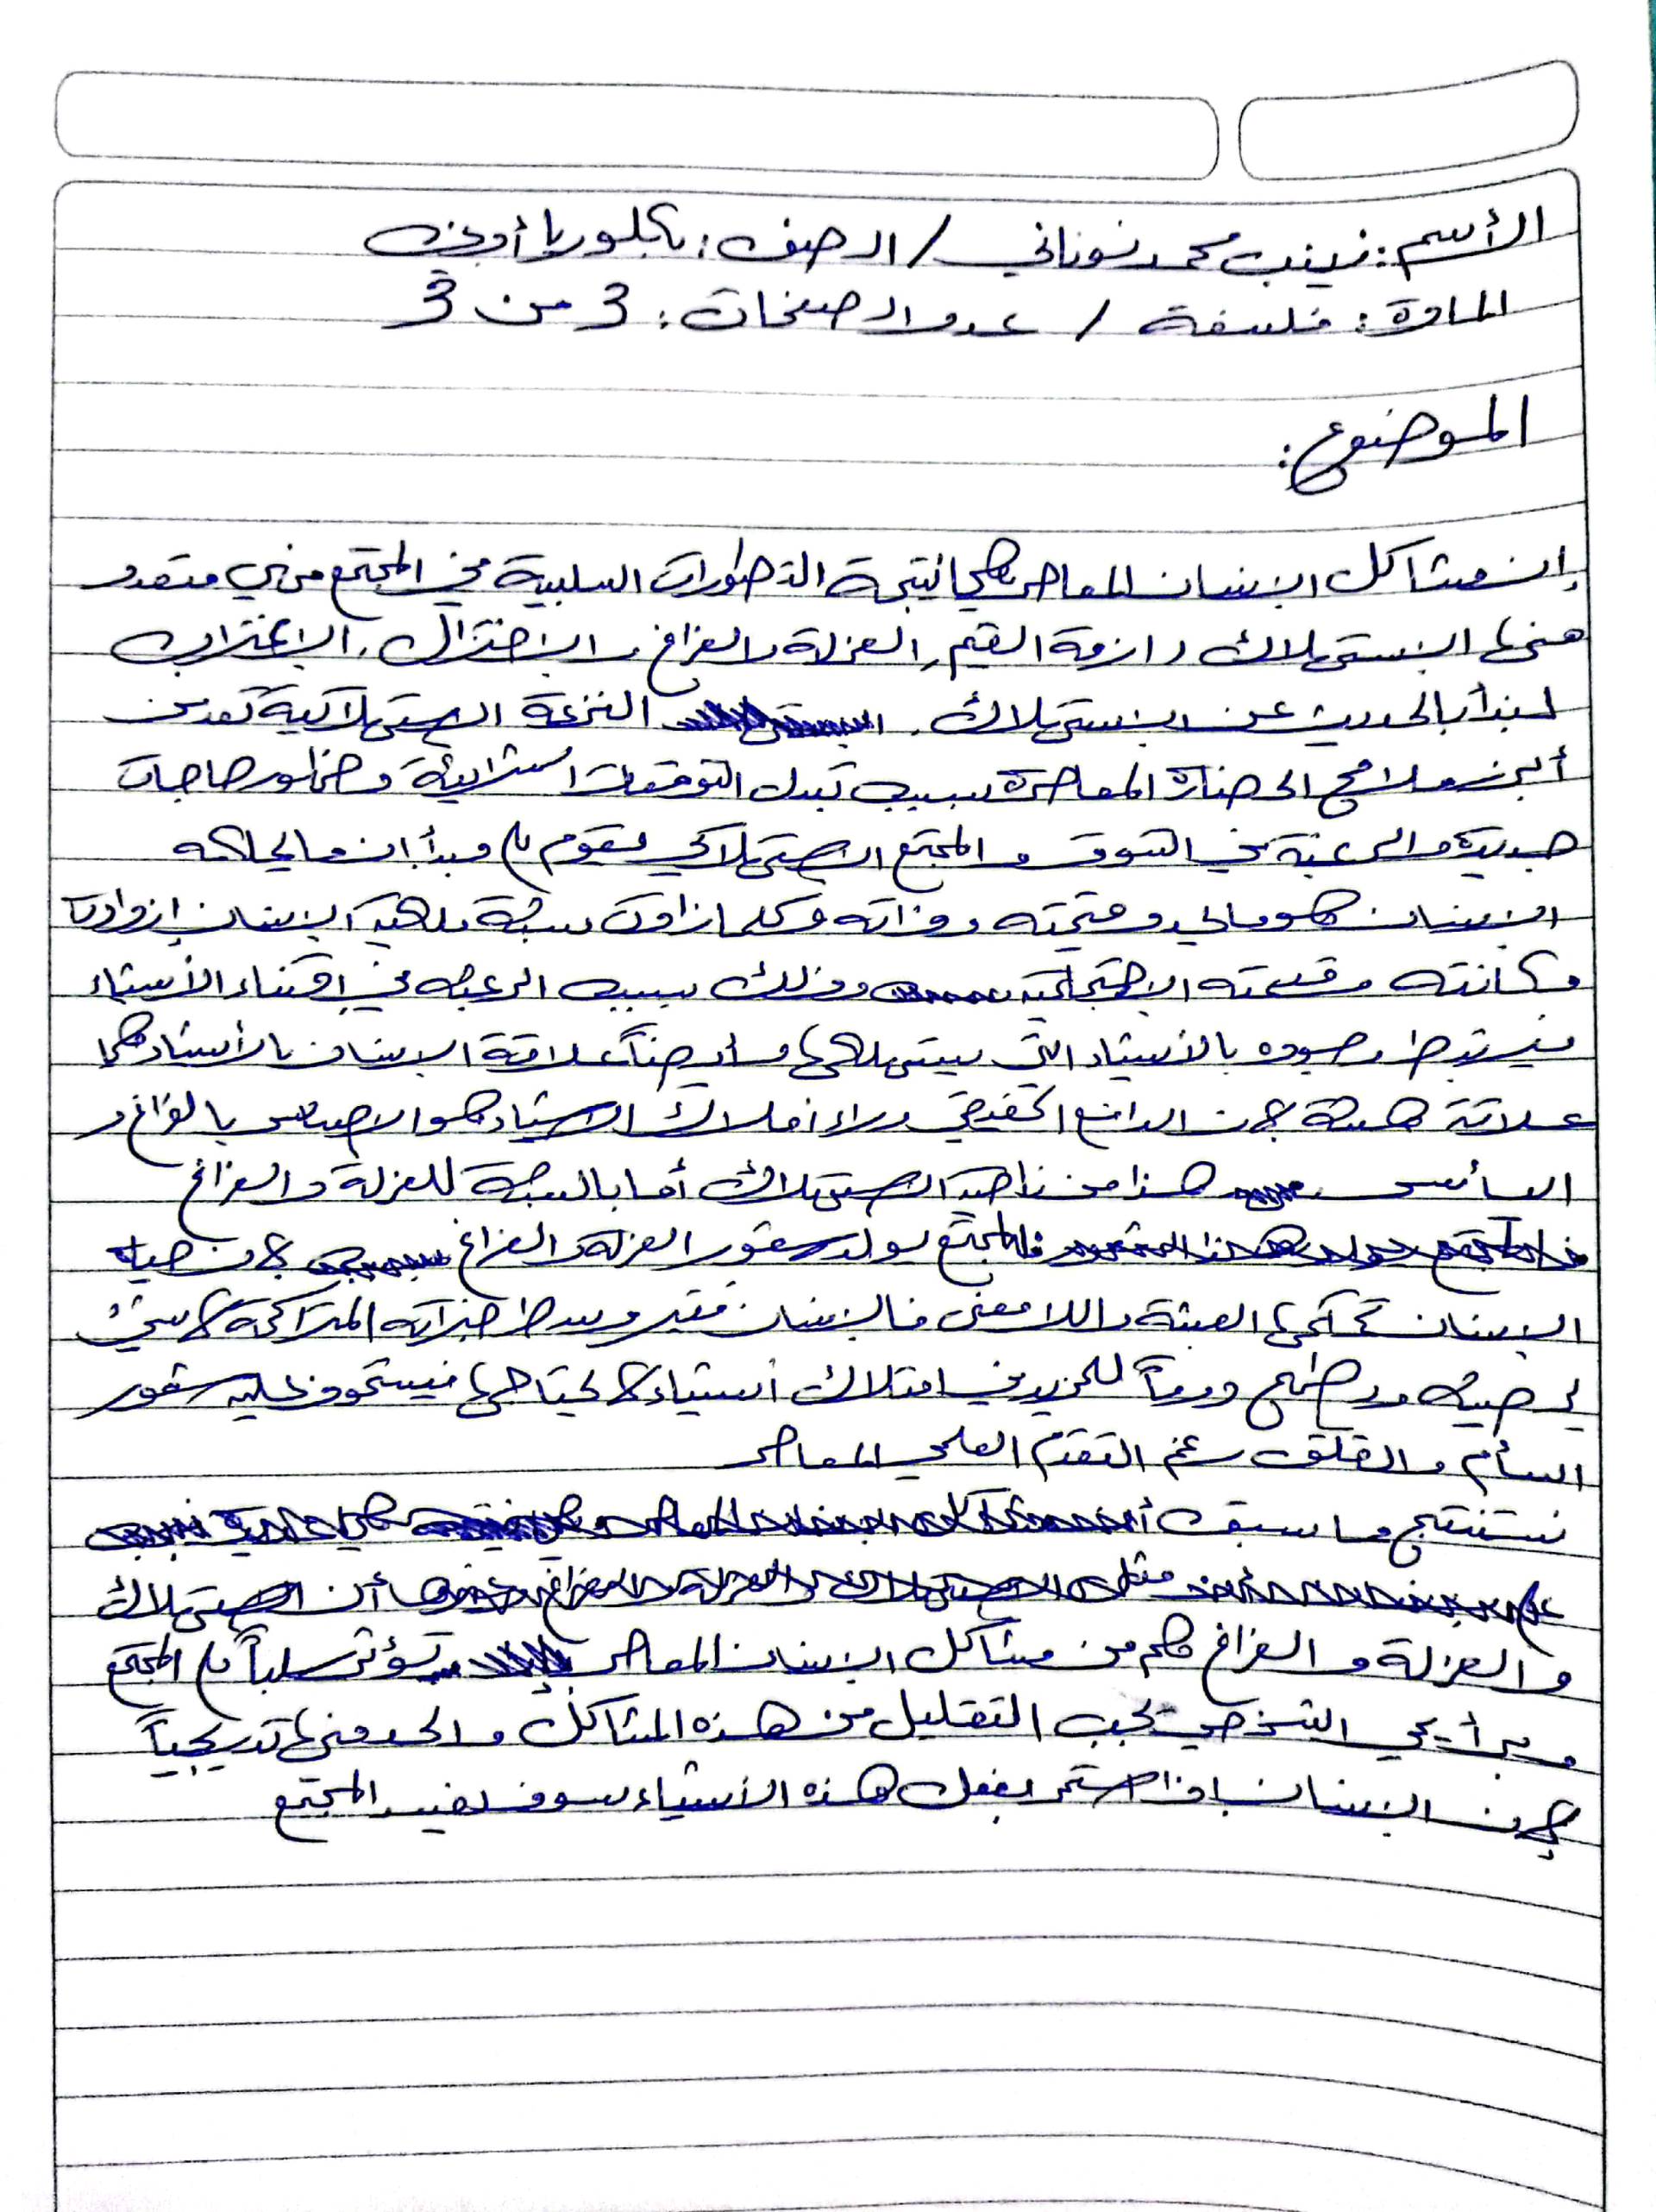 الأسم: زينب محمد نوناني / الصف: بكلوريا أونلاين
المادة: فلسفة / عدد الصفحات: 3 من 3
الموضوع:
إن مشاكل الإنسان المعاصر هي نتيجة التطورات السلبية في المجتمع فهي متعدد
منها الاستهلاك، ازمة القيم، العزلة والفراغ، الاختزال، الاغتراب
لنبدأ بالحديث عن الاستهلاك. النزعة الاستهلاكية تعد من
أبرز ملامح الحضارة المعاصرة بسبب تبدل التوقعات الشرائية وظهور حاجات
جديدة والرغبة في التسوق والمجتمع الاستهلاكي يقوم على مبدأ إن ما يملكه
الإنسان هو ما يحدد قيمته وذاته فكلما زادت نسبة ملكية الإنسان إزدادت
مكانته وقيمته الاجتماعية وذلك بسبب الرغبة في اقتناء الأشياء
فيرتبط وجوده بالأشياء التي يستهلكها وأيضاً علاقة الإنسان بالأشياء هي
علاقة هشة لأن الدافع الحقيقي وراء امتلاك الاشياء هو الاحساس بالفراغ و
اليأس هذا من ناحية الاستهلاك أما بالنسبة للعزلة والفراغ
فالمجتمع يولد شعور العزلة والفراغ لأن حياة
الإنسان تحكمها العبثة واللامعنى فالإنسان فقير وسط خبراته المتراكمة لا شيء
يرضيه ويطمح دوماً للمزيد في امتلاك أشياء لا يحتاجها فيستحوذ عليه شعور
السأم والقلق رغم التقدم العلمي المعاصر
نستنتج مما سبق
أن الاستهلاك
والعزلة والفراغ هم من مشاكل الإنسان المعاصر تؤثر سلباً على المجتمع
وبرأيي الشخصي يجب التقليل من هذه المشاكل والحد منها تدريجياً
لأن الإنسان إذا استمر بفعل هذه الأشياء سوف يفسد المجتمع